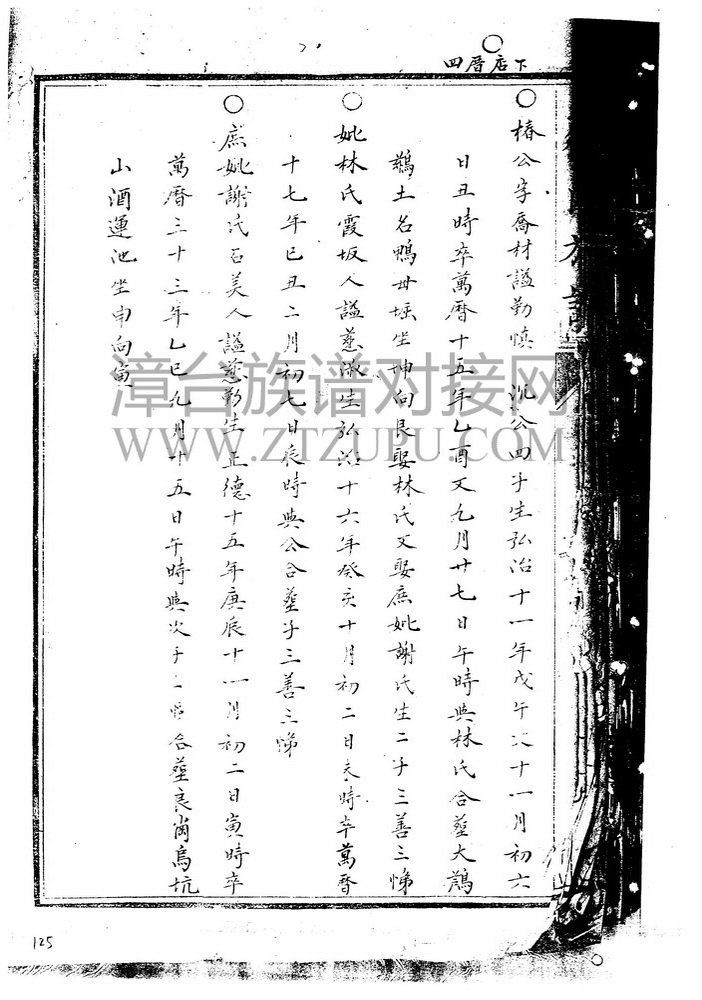 四厝店下
○椿公字喬材謚勤慎 沉公四子生弘治十一年戊午又十一月初六
日丑時卒萬曆十五年乙酉又九月廿七日午時與林氏合塟大鵲
鵲土名鴨母堀坐坤向艮娶林氏又娶庶妣謝氏生二子三善三悌
○妣林氏霞坂人謚慈淑生弘治十六年癸亥十月初二日 時卒萬曆
十七年己丑二月初七日辰時與公合塟子三善三悌
○庶妣謝氏石美人謚慈勤生正德十五年庚辰十一月初二日寅時卒
萬曆三十三年乙巳九月十五日午時與次子三悌合塟良崗烏坑
山酒運池坐申向寅
漳台族谱对接网
WWW.ZTZUPU.COM
125